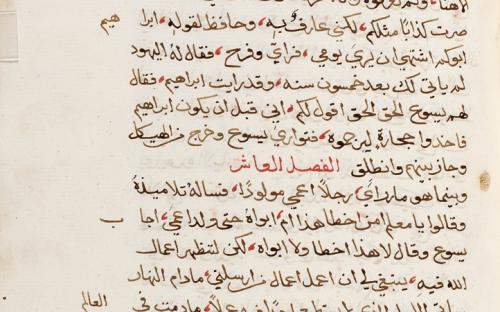 صرت كذابا مثلكم، لكني عارف به، وحافظ لقوله، ابراهيم
ابوكم اشتهي ان يري يومي، فراي وفرح، فقال له اليهود
لم ياتي لك بعد خمسون سنه، وقد رايت ابراهيم، فقال
لهم يسوع الحق الحق اقول لكم، اني قبل ان يكون ابراهيم
فاخدوا حجارة ليرجموه، فتواري يسوع وخرج من الهيكل
وجاز بينهم وانطلق الفصل العاشر
وبينما هو مار راي رجلا اعمي مولودا، فساله تلاميذه
وقالوا يا معلم من اخطا هذا ام ابواه حتى ولد اعمي، اجاب
يسوع وقال لا هذا اخطا ولا ابواه، لكن لتظهر اعمال
الله فيه، ينبغي لي ان اعمل اعمال من ارسلني، مادام النهار
العالم
مادمت في